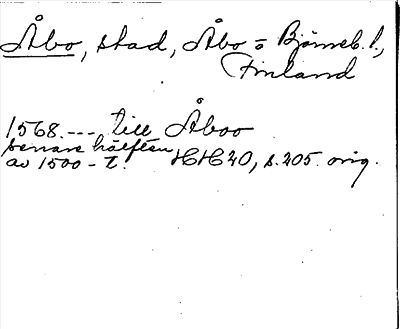 Åbo, stad, Åbo o Björneb. l.,
Finland
1568. --- till Åboo
senare hälften
av 1500-t. HH 20, s. 205. orig.